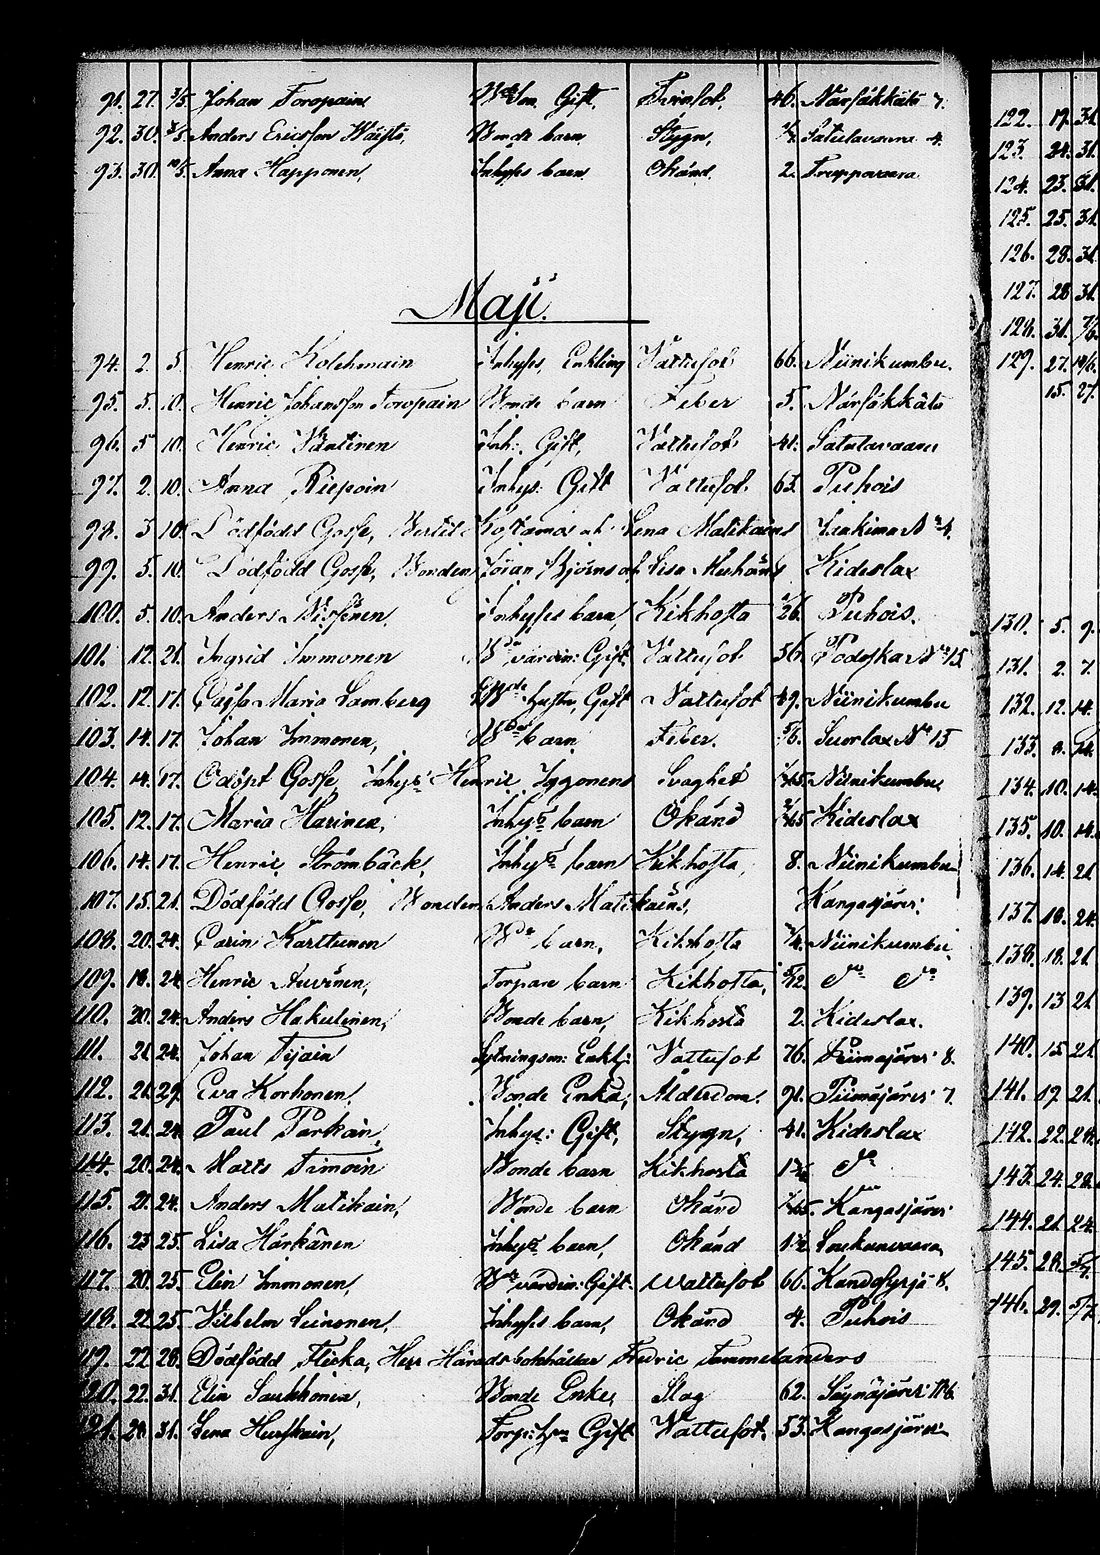 91. 27. 3/5. Johan Toropain Gift, Tvinsot. 46. Närsäkkälä 7.
92. 30. Anders Ericsson Bonde barn, Stygn, Satulavaara 4.
93. 30. 10/5. Anna Happonen, Inhyses barn Okänd. 2. Truppovaara
Maji.
94. 2. 5. Henric Kolehmain Inhyses, Enkling Vattusot 66. Niinikumbu.
95. 5. 10. Henric Johansson Toropain Bonde barn Feber 5. Närsäkkälä
96. 5 10. Henric Väntinen Inh: Gift, Vattusot 41. Satulavaara
97. 2. 10. Anna Riepoin Inhys: Gift Vattusot. 63. Puhois
98. 3 10. Dödfödd Gosse, Bertil Kostamos af Lena Matikains Jaakima No 4.
99. 5. 10. Dödfödd Gosse, Bonden Jöran Björns af Lisa Kideslax
100. 5. 10. Anders Nissinen. Inhyses barn, Kikhosta 26. Puhois.
101. 12. 21. Ingrid Immonen värdin: Gift. Vattusot 56. Podoska No 15.
102. 12. 17. Cajsa Maria Lamberg hustru, Gift Vattusot 49. Niinikumbu
103. 14. 17. Johan Immonen, barn Feber. Suorlax No 15
104. 14. 17. Odöpt Gosse, Inhys: Henric Iggonens Svaghet Niinikumbu
105. 12. 17. Maria Harinen, Inhys barn Okänd Kideslax
106. 14. 17. Henric Strömbäck, Inhys barn Kikhosta, 8. Niinikumbu
107. 15. 21. Dödfödd Gosse, Bonden Anders Matikains, Kangasjärvi:
108. 20. 24. Carin Karttunen barn, Kikhosta Niinikumbu
109. 18. 24. Henric Auvinen, Torpare barn Kikhosta, 5/12. Do Do
110. 20. 24. Anders Hakulinen, Bonde barn, Kikhosta 2. Kideslax.
111. 21. 24. Johan Tijain Enkl: Vattusot 76. Piimäjärvi 8.
112. 21. 29. Eva Korhonen, Bonde Enka, Ålderdom. 91. Piimäjärvi 7.
113. 21. 24. Paul Parkain, Inhys: Gift, Stygn, 41. Kideslax
114. 20. 24. Matts Timoin Bonde barn Kikhosta Do
115. 21. 24. Anders Matikain, Bonde barn Okänd Kangasjärvi
116. 23. 25. Lisa Härkänen Inhys barn, Okänd
117. 20. 25. Elin Immonen, värdin: Gift. Wattusot 66. 8.
118. 22. 25. Vilhelm Leinonen, Inhyses barn, Okänd 4. Puhois
119. 22. 28. Dödfödd Flicka, Herr Häradsbokhållar Fredric Tammelanders
120. 22. 31. Elin Saukkonen, Bonde Enka, Slag 62.
121. 28. 31. Lena Hurskain, Gift Vattusot. 53. Kangasjärvi
122. 19. 31.
123. 24. 31.
124. 23. 31.
125. 25. 31.
126. 28. 31.
127. 28 31.
128. 31.
129. 27.
15. 27.
130. 5. 9.
131. 2. 7.
132. 12. 14.
133. 14.
134. 10. 14.
135. 10. 14.
136. 14. 21.
137. 18. 24.
138. 18. 21.
139. 13. 21.
140. 15. 21.
141. 19. 21.
142. 22. 24.
143. 24. 28.
144. 21. 24.
145. 28. 5/7.
146. 29. 5/7.